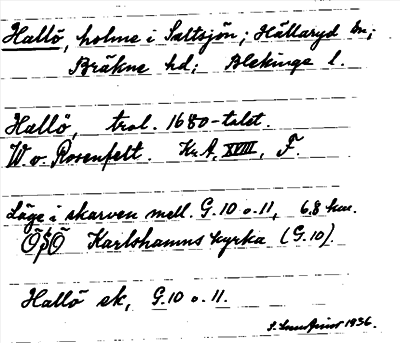 Hallö, holme i Saltsjön; Hällaryd sn;
Bräkne hd; Blekinge l.
Hallö, trol. 1680-talet.
W. v. Rosenfelt. Kr.A, XVIII, F.
Läge i skarven mell. G.10 o. 11, 6,8 km.
ÖSÖ Karlshamns kyrka (G.10).
Hallö sk, G.10 o. 11.
1936.